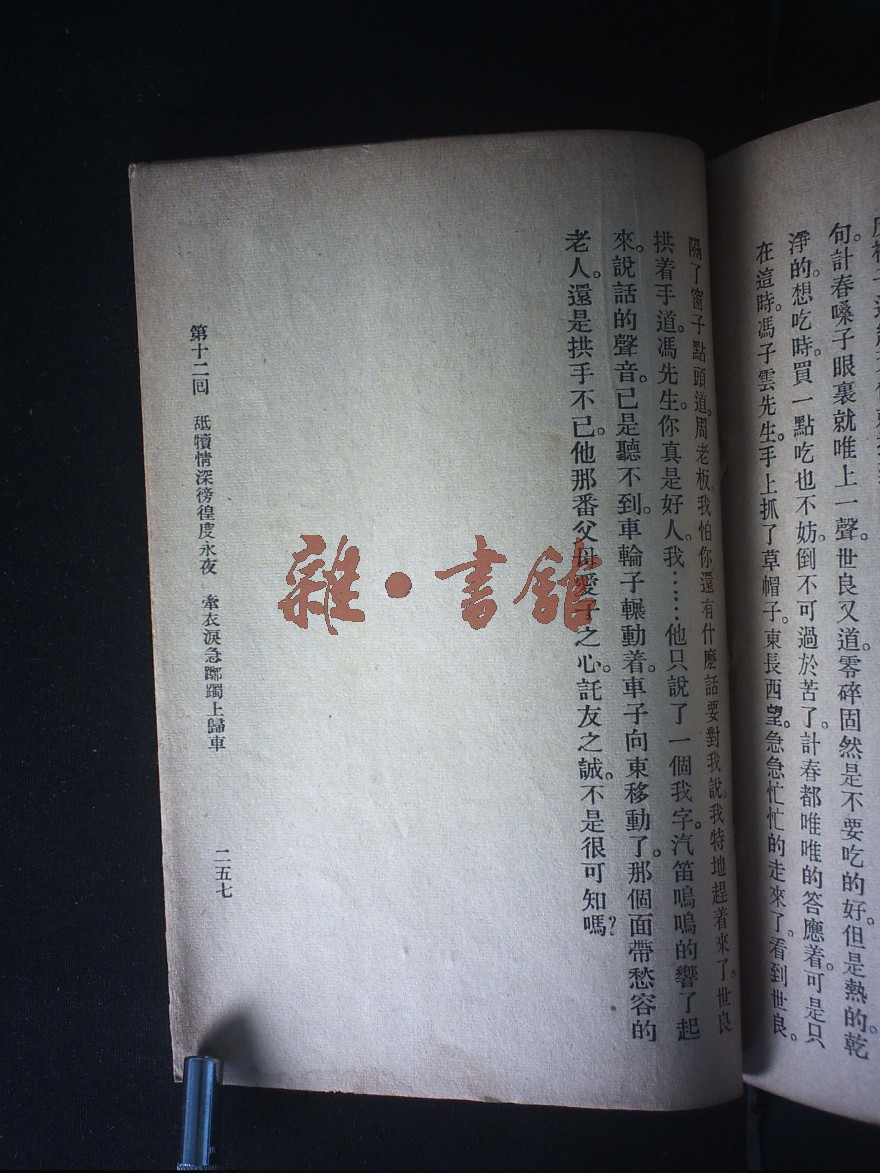 句。計春嗓子眼裏就唯上一聲。世良又道。零碎固然是不要吃的好。但是熱的。乾
淨的。想吃時。買一點吃也不妨。倒不可過於苦了。計春都唯唯的答應着。可是只
在這時。馮子雲先生。手上抓了草帽子。東長西望。急急忙忙的走來了。看到世良。
隔了窗子點頭道。周老板。我怕你還有什麽話要對我說。我特地趕着來了。世良
拱着手道。馮先生。你真是好人。我……他只說了一個我字。汽笛嗚嗚的響了起
來。說話的聲音。已是聽不到。車輪子輾動着。車子向東移動了。那個面帶愁容的
老人。還是拱手不已。他那番父母愛子之心。託友之誠。不是很可知嗎?
第十二回 舐犢情深徬徨度永夜 牽衣淚急躑躅上歸車
二五七
雜·書館